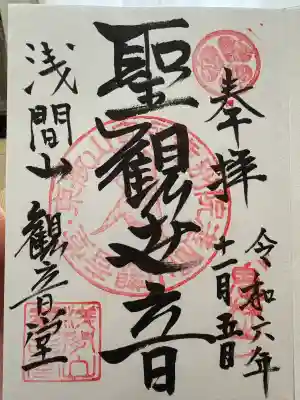 奉拝
令和六年
十一月五日
聖観世音
浅間山 觀音堂